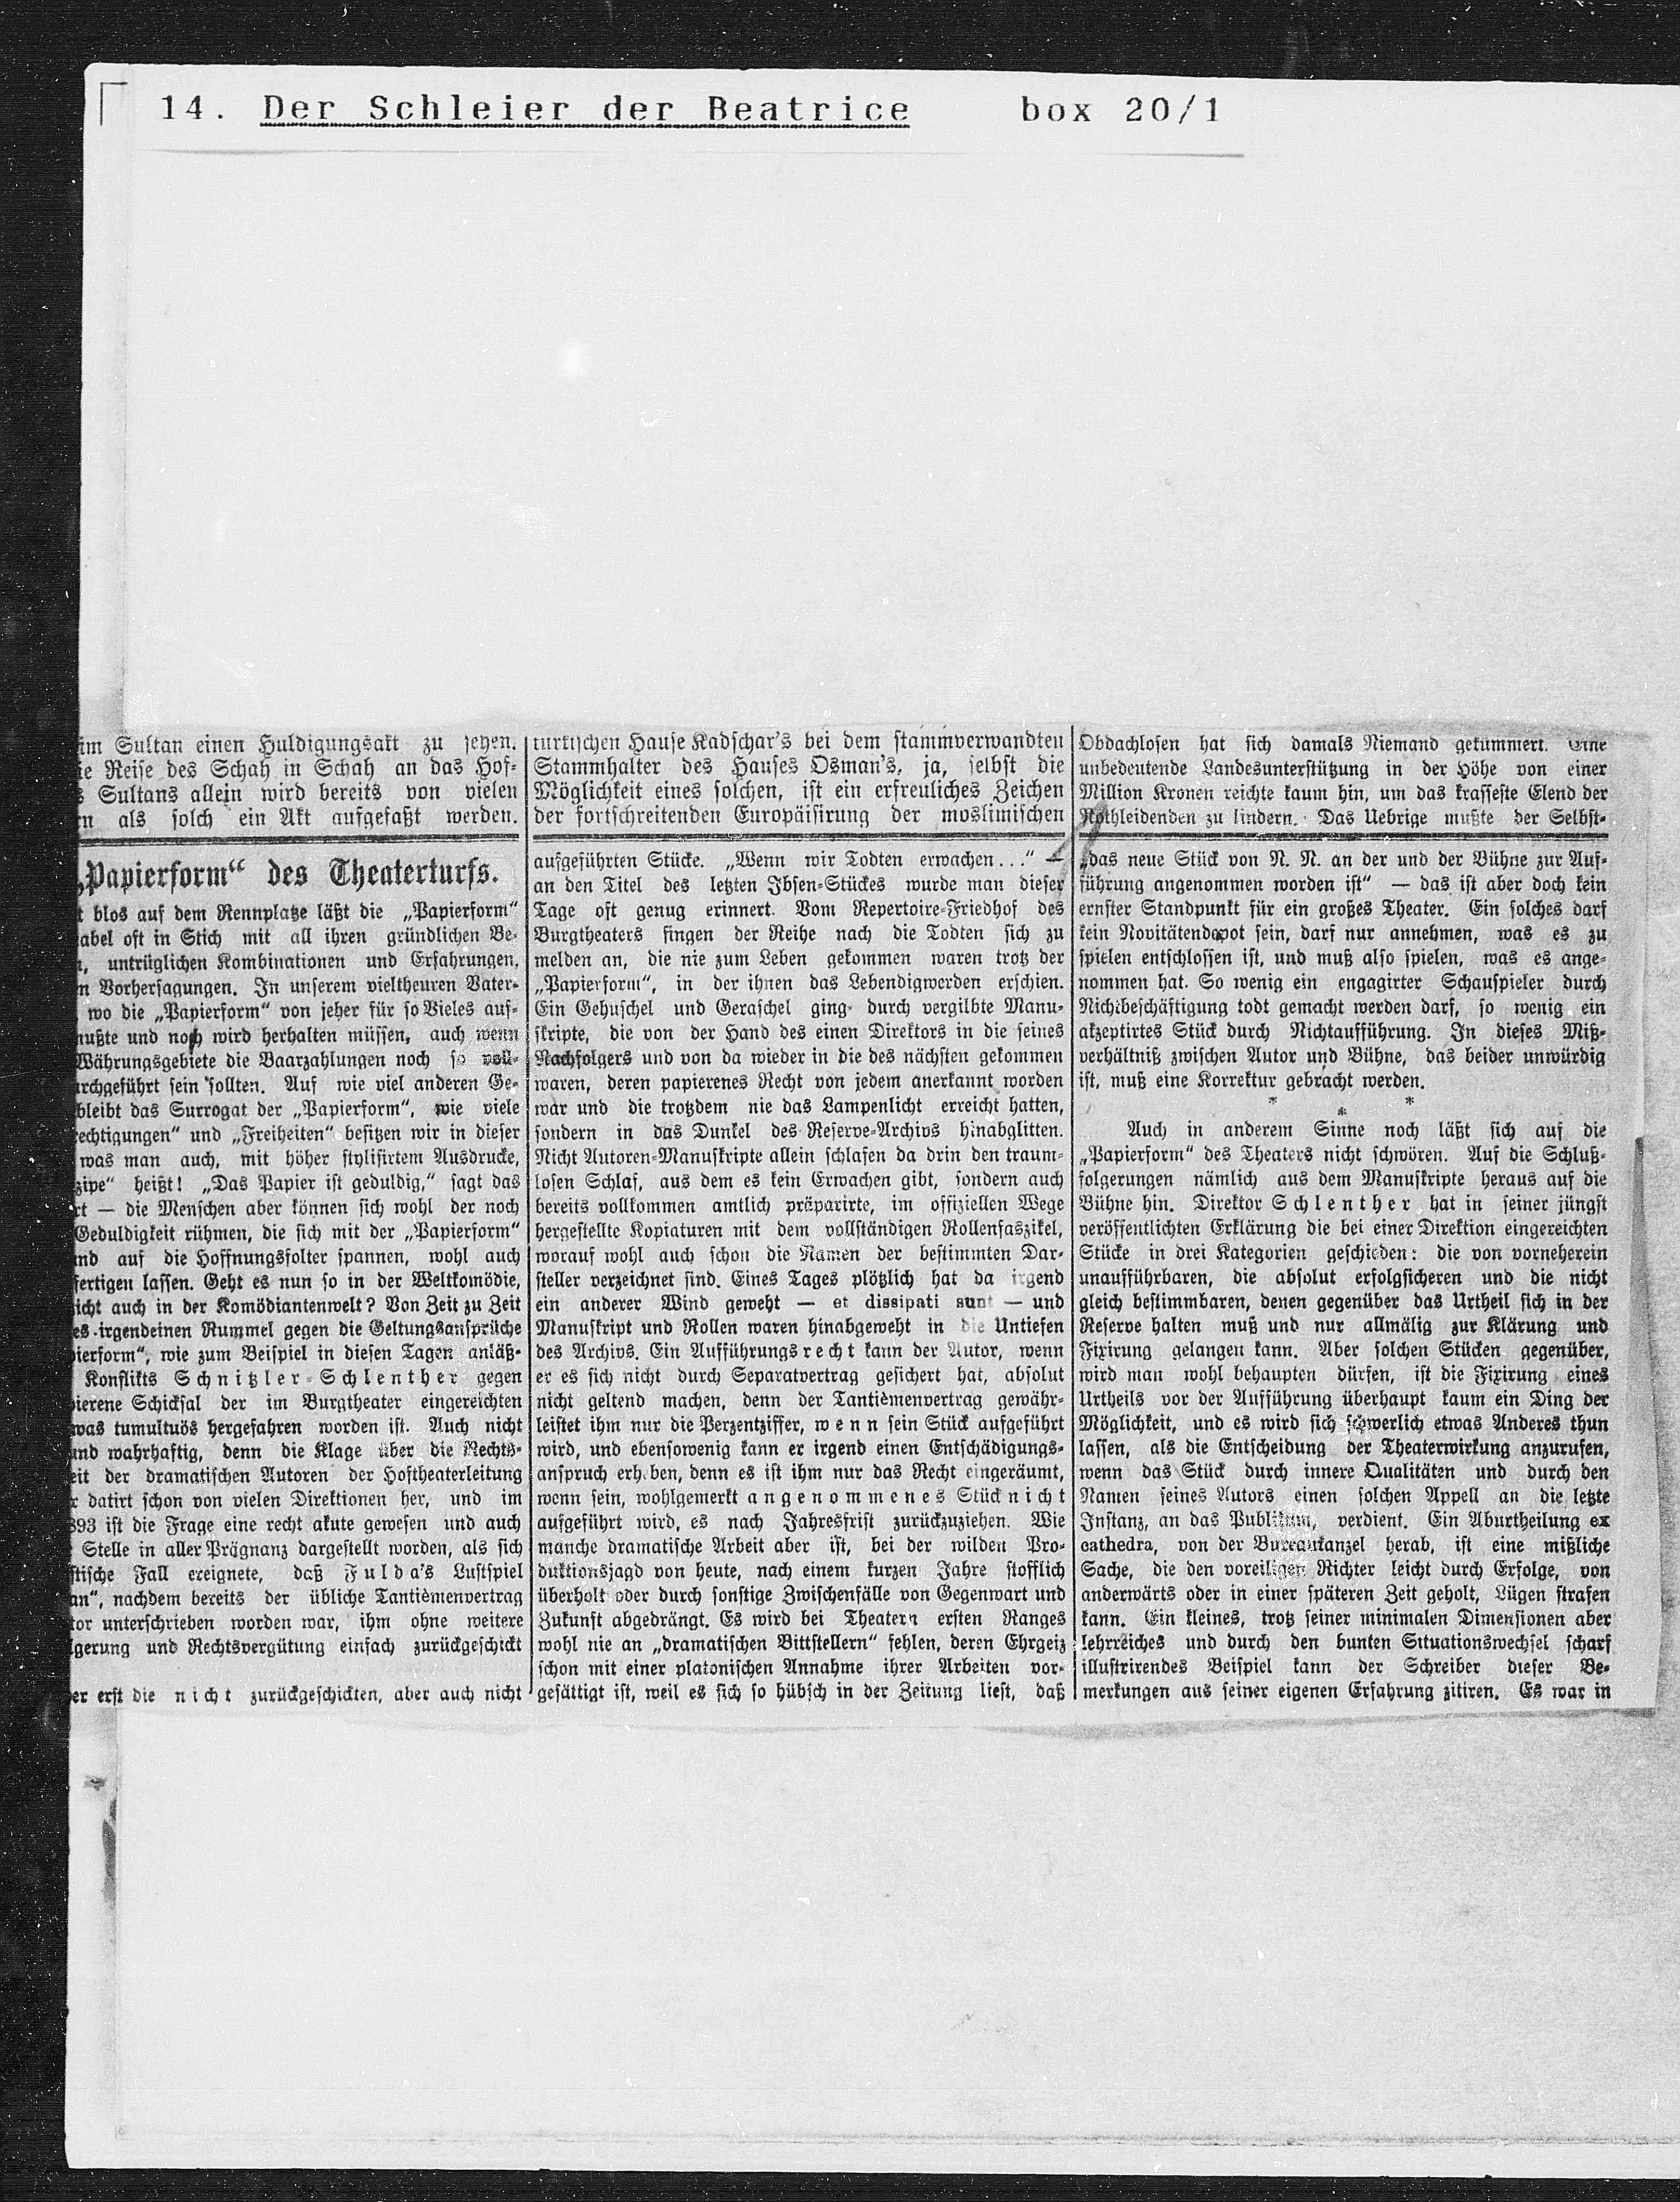 14. Der Schleier der Beatrice box 20/1
im Sultan einen Huldigungsakt zu sehen.
ie Reise des Schah in Schah an das Hof-
s Sultans allein wird bereits von vielen
rn als solch ein Akt aufgefaßt werden.
„Papierform“ des Theaterturfs.
t blos auf dem Rennplatze läßt die „Papierform“
abel oft in Stich mit all ihren gründlichen Be-
n, untrüglichen Kombinationen und Erfahrungen,
n Vorhersagungen. In unserem vieltheuren Vater-
wo die „Papierform“ von jeher für so Vieles auf-
mußte und noch wird herhalten müssen, auch wenn
Währungsgebiete die Baarzahlungen noch so voll-
urchgeführt sein sollten. Auf wie viel anderen Ge-
bleibt das Surrogat der „Papierform“, wie viele
echtigungen“ und „Freiheiten“ besitzen wir in dieser
was man auch, mit höher stylisirtem Ausdrucke,
zipe“ heißt! „Das Papier ist geduldig,“ sagt das
rt — die Menschen aber können sich wohl der noch
Geduldigkeit rühmen, die sich mit der „Papierform“
und auf die Hoffnungsfolter spannen, wohl auch
fertigen lassen. Geht es nun so in der Weltkomödie,
icht auch in der Komödiantenwelt? Von Zeit zu Zeit
es irgendeinen Rummel gegen die Geltungsansprüche
pierform“, wie zum Beispiel in diesen Tagen anläß-
Konflikts Schnitzler-Schlenther gegen
pierene Schicksal der im Burgtheater eingereichten
was tumultuös hergefahren worden ist. Auch nicht
und wahrhaftig, denn die Klage über die Rechts-
eit der dramatischen Autoren der Hoftheaterleitung
r datirt schon von vielen Direktionen her, und im
893 ist die Frage eine recht akute gewesen und auch
Stelle in aller Prägnanz dargestellt worden, als sich
stische Fall ereignete, daß Fulda's Lustspiel
an“, nachdem bereits der übliche Tantièmenvertrag
tor unterschrieben worden war, ihm ohne weitere
igerung und Rechtsvergütung einfach zurückgeschickt
er erst die nicht zurückgeschickten, aber auch nicht
türkischen Hause Kadschar's bei dem stammverwandten
Stammhalter des Hauses Osman's, ja, selbst die
Möglichkeit eines solchen, ist ein erfreuliches Zeichen
der fortschreitenden Europäisirung der moslimischen
aufgeführten Stücke. „Wenn wir Todten erwachen...“ —
an den Titel des letzten Ibsen-Stückes wurde man dieser
Tage oft genug erinnert. Vom Repertoire-Friedhof des
Burgtheaters fingen der Reihe nach die Todten sich zu
melden an, die nie zum Leben gekommen waren trotz der
„Papierform“, in der ihnen das Lebendigwerden erschien.
Ein Gehuschel und Geraschel ging durch vergilbte Manu-
skripte, die von der Hand des einen Direktors in die seines
Nachfolgers und von da wieder in die des nächsten gekommen
waren, deren papierenes Recht von jedem anerkannt worden
war und die trotzdem nie das Lampenlicht erreicht hatten,
sondern in das Dunkel des Reserve-Archivs hinabglitten.
Nicht Autoren-Manuskripte allein schlafen da drin den traum-
losen Schlaf, aus dem es kein Erwachen gibt, sondern auch
bereits vollkommen amtlich präparirte, im offiziellen Wege
hergestellte Kopiaturen mit dem vollständigen Rollenfaszikel,
worauf wohl auch schon die Namen der bestimmten Dar-
steller verzeichnet sind. Eines Tages plötzlich hat da irgend
ein anderer Wind geweht — et dissipati sunt — und
Manuskript und Rollen waren hinabgeweht in die Untiefen
des Archivs. Ein Aufführungsrecht kann der Autor, wenn
er es sich nicht durch Separatvertrag gesichert hat, absolut
nicht geltend machen, denn der Tantièmenvertrag gewähr-
leistet ihm nur die Perzentziffer, wenn sein Stück aufgeführt
wird, und ebensowenig kann er irgend einen Entschädigungs-
anspruch erheben, denn es ist ihm nur das Recht eingeräumt,
wenn sein, wohlgemerkt angenommenes Stück nicht
aufgeführt wird, es nach Jahresfrist zurückzuziehen. Wie
manche dramatische Arbeit aber ist, bei der wilden Pro-
duktionsjagd von heute, nach einem kurzen Jahre stofflich
überholt oder durch sonstige Zwischenfälle von Gegenwart und
Zukunft abgedrängt. Es wird bei Theatern ersten Ranges
wohl nie an „dramatischen Bittstellern“ fehlen, deren Ehrgeiz
schon mit einer platonischen Annahme ihrer Arbeiten vor-
gesättigt ist, weil es sich so hübsch in der Zeitung liest, daß
Obdachlosen hat sich damals Niemand gekümmert. Eine
unbedeutende Landesunterstützung in der Höhe von einer
Million Kronen reichte kaum hin, um das krasseste Elend der
Nothleidenden zu lindern. Das Uebrige mußte der Selbst-
„das neue Stück von N. N. an der und der Bühne zur Auf-
führung angenommen worden ist“ — das ist aber doch kein
ernster Standpunkt für ein großes Theater. Ein solches darf
kein Novitätendepot sein, darf nur annehmen, was es zu
spielen entschlossen ist, und muß also spielen, was es ange-
nommen hat. So wenig ein engagirter Schauspieler durch
Nichtbeschäftigung todt gemacht werden darf, so wenig ein
akzeptirtes Stück durch Nichtaufführung. In dieses Miß-
verhältniß zwischen Autor und Bühne, das beider unwürdig
ist, muß eine Korrektur gebracht werden.
* * *
Auch in anderem Sinne noch läßt sich auf die
„Papierform“ des Theaters nicht schwören. Auf die Schluß-
folgerungen nämlich aus dem Manuskripte heraus auf die
Bühne hin. Direktor Schlenther hat in seiner jüngst
veröffentlichten Erklärung die bei einer Direktion eingereichten
Stücke in drei Kategorien geschieden: die von vorneherein
unaufführbaren, die absolut erfolgsicheren und die nicht
gleich bestimmbaren, denen gegenüber das Urtheil sich in der
Reserve halten muß und nur allmälig zur Klärung und
Fixirung gelangen kann. Aber solchen Stücken gegenüber,
wird man wohl behaupten dürfen, ist die Fixirung eines
Urtheils vor der Aufführung überhaupt kaum ein Ding der
Möglichkeit, und es wird sich schwerlich etwas Anderes thun
lassen, als die Entscheidung der Theaterwirkung anzurufen,
wenn das Stück durch innere Qualitäten und durch den
Namen seines Autors einen solchen Appell an die letzte
Instanz, an das Publikum, verdient. Ein Aburtheilung ex
cathedra, von der Bureaukanzel herab, ist eine mißliche
Sache, die den voreiligen Richter leicht durch Erfolge, von
anderwärts oder in einer späteren Zeit geholt, Lügen strafen
kann. Ein kleines, trotz seiner minimalen Dimensionen aber
lehrreiches und durch den bunten Situationswechsel scharf
illustrirendes Beispiel kann der Schreiber dieser Be-
merkungen aus seiner eigenen Erfahrung zitiren. Es war in